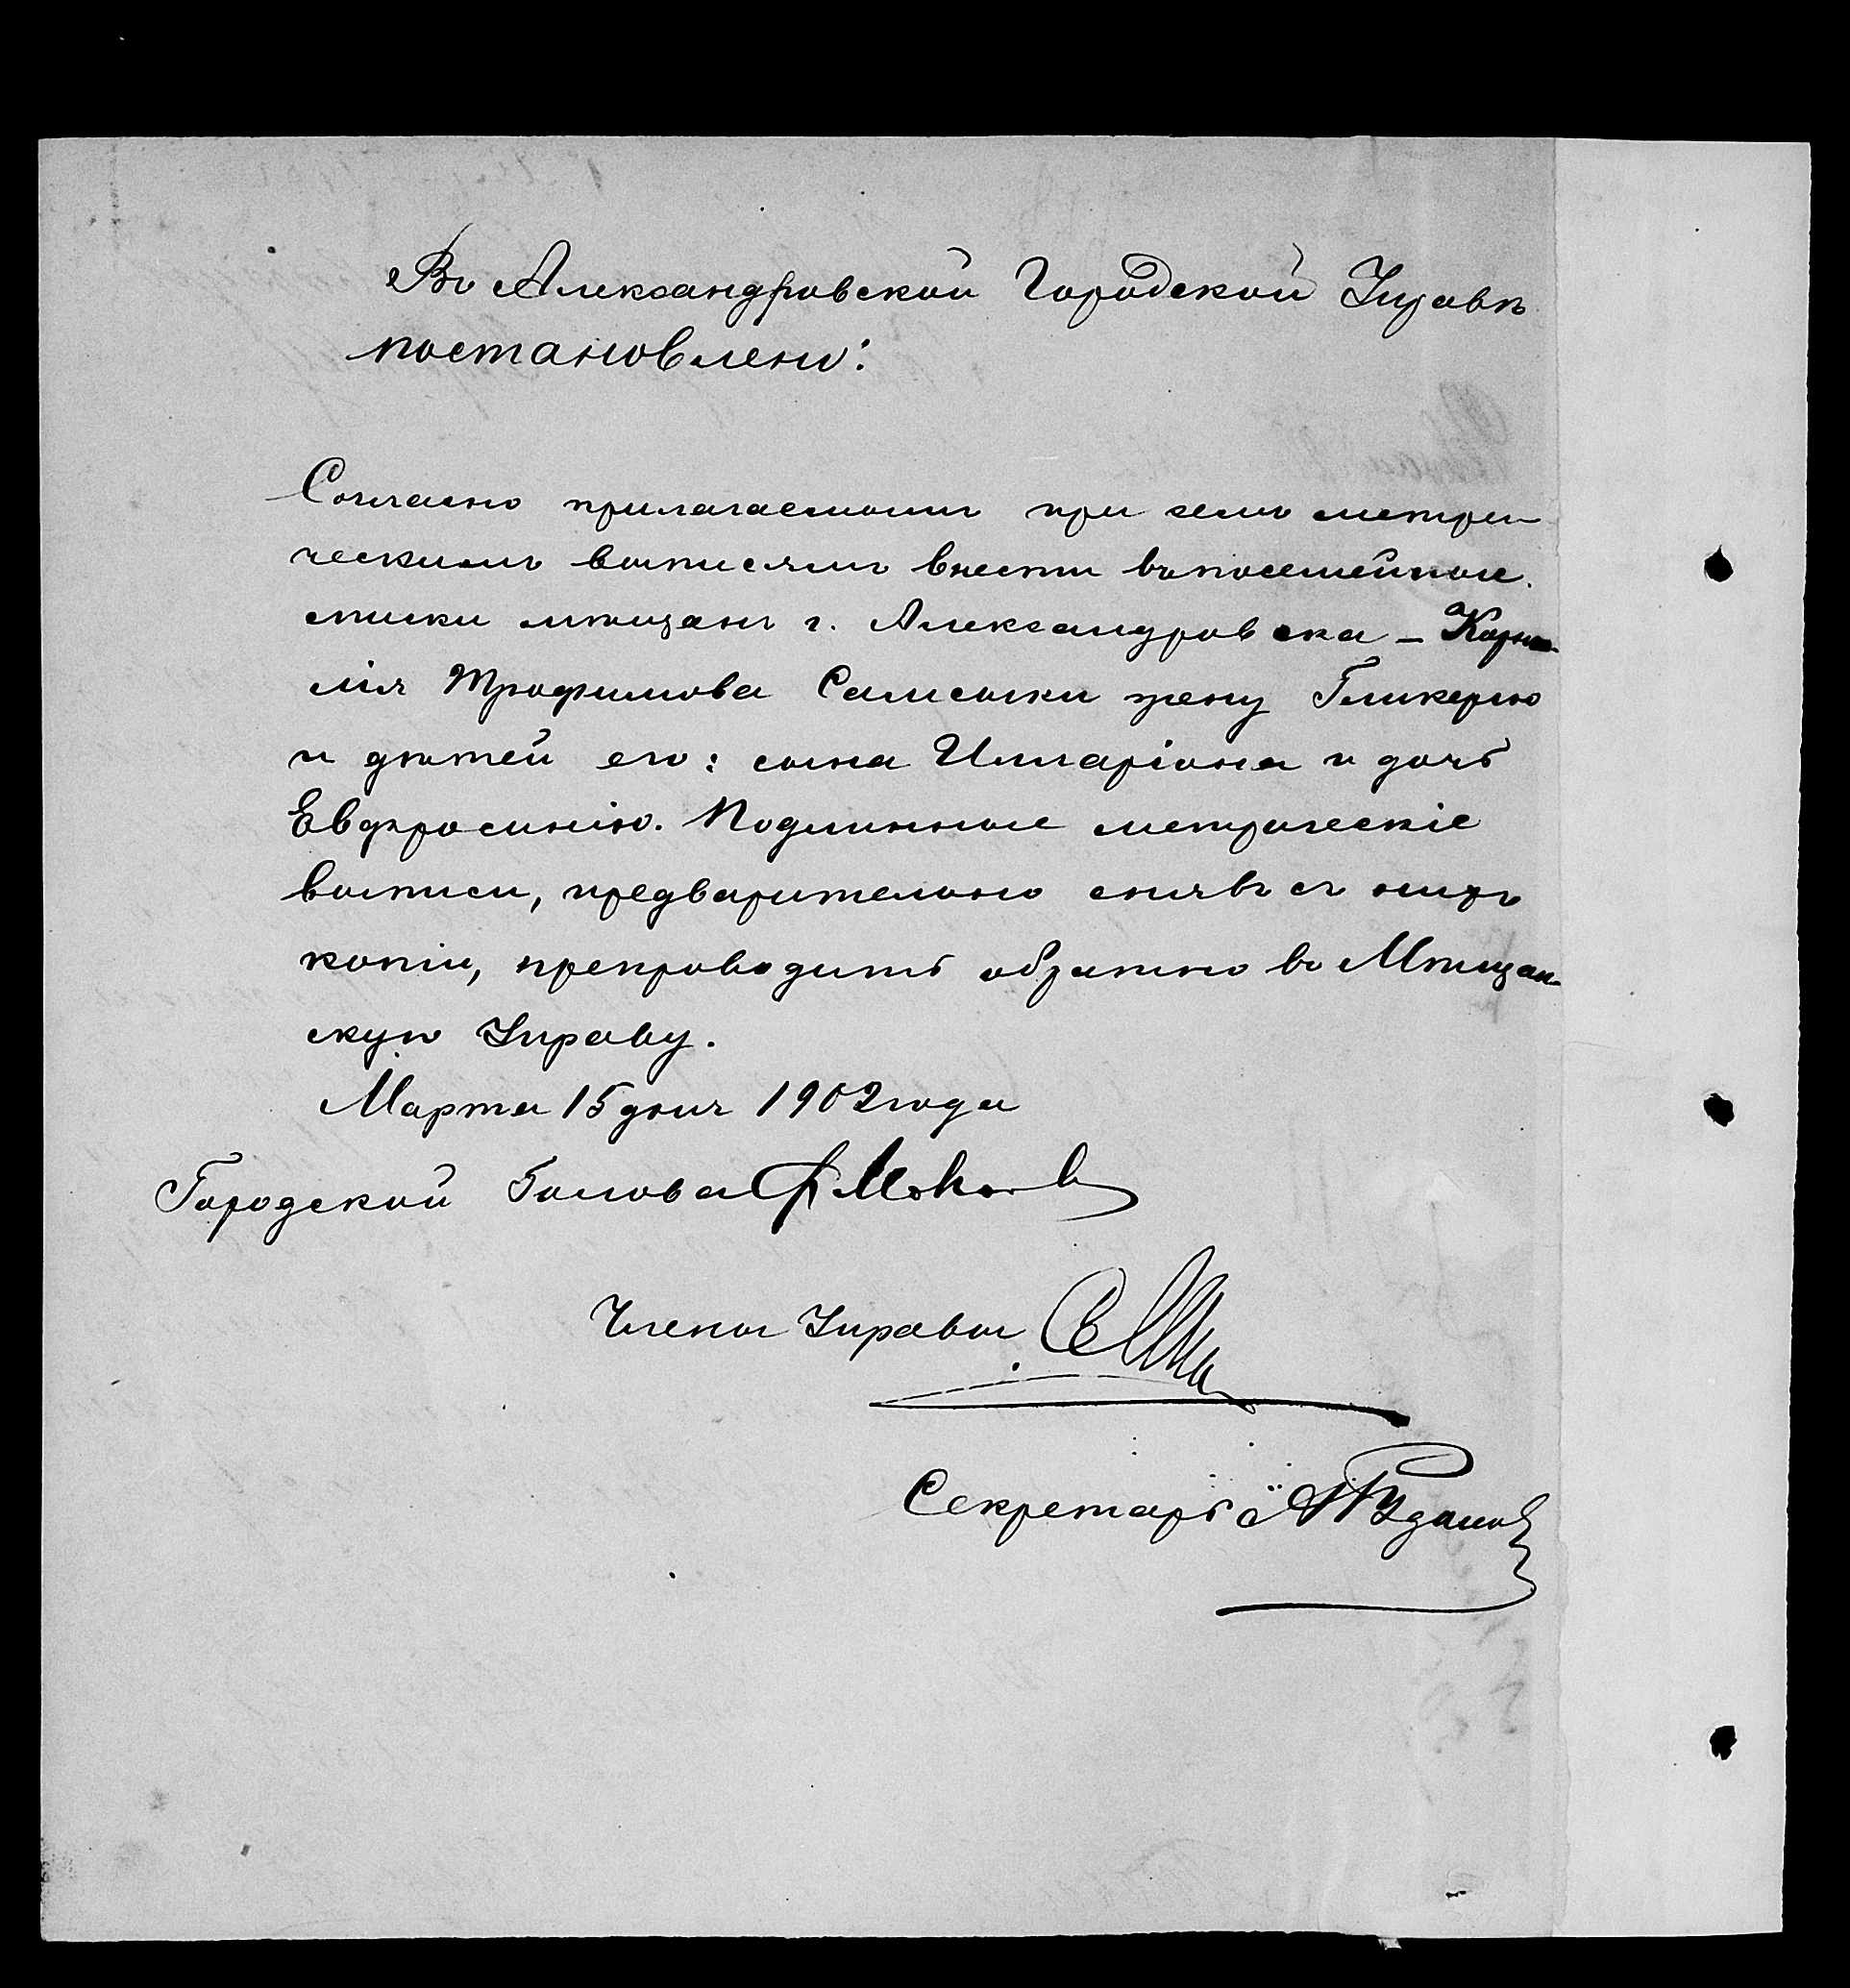 Въ Александровской Городской Управѣ
постановлено:
Согласно прилагаемымъ при семъ метри-
ческимъ выписямъ внести въ посемейные
списки мѣщанъ г. Александровска – Корне-
лія Трофимова Самсыки жену Гликерію
и дѣтей его: сына Илларіона и дочь
Евфросинію. Подлинные метрическіе
выписи, предварительно снявъ съ нихъ
копіи, препроводить обратно въ Мѣщан-
скую Управу.
Марта 15 дня 1902 года
Городской Голова
Члены Управы
Секретарь